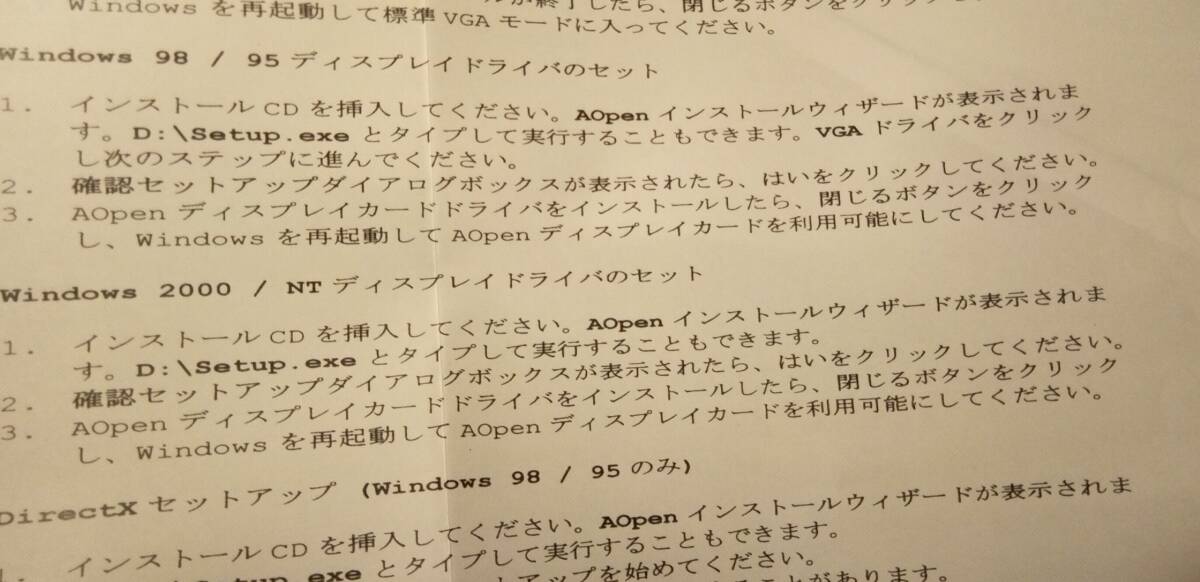 ルが終了したら、閉じるボタンをクリック
Windows を再起動して標準 VGA モードに入ってください。
Windows 98 / 95 ディスプレイドライバのセット
1. インストール CD を挿入してください。AOpen インストールウィザードが表示されま
す。D:\Setup.exe とタイプして実行することもできます。VGA ドライバをクリック
し次のステップに進んでください。
2. 確認セットアップダイアログボックスが表示されたら、はいをクリックしてください。
3. AOpen ディスプレイカードドライバをインストールしたら、閉じるボタンをクリック
し、Windows を再起動して AOpen ディスプレイカードを利用可能にしてください。
Windows 2000 / NT ディスプレイドライバのセット
1. インストール CD を挿入してください。AOpen インストールウィザードが表示されま
す。D:\Setup.exe とタイプして実行することもできます。
2. 確認セットアップダイアログボックスが表示されたら、はいをクリックしてください。
3. AOpen ディスプレイカードドライバをインストールしたら、閉じるボタンをクリック
し、Windows を再起動して AOpen ディスプレイカードを利用可能にしてください。
DirectX セットアップ (Windows 98 / 95 のみ)
1. インストール CD を挿入してください。AOpen インストールウィザードが表示されま
Setup.exe とタイプして実行することもできます。
トアップを始めてください。
ることがあります。